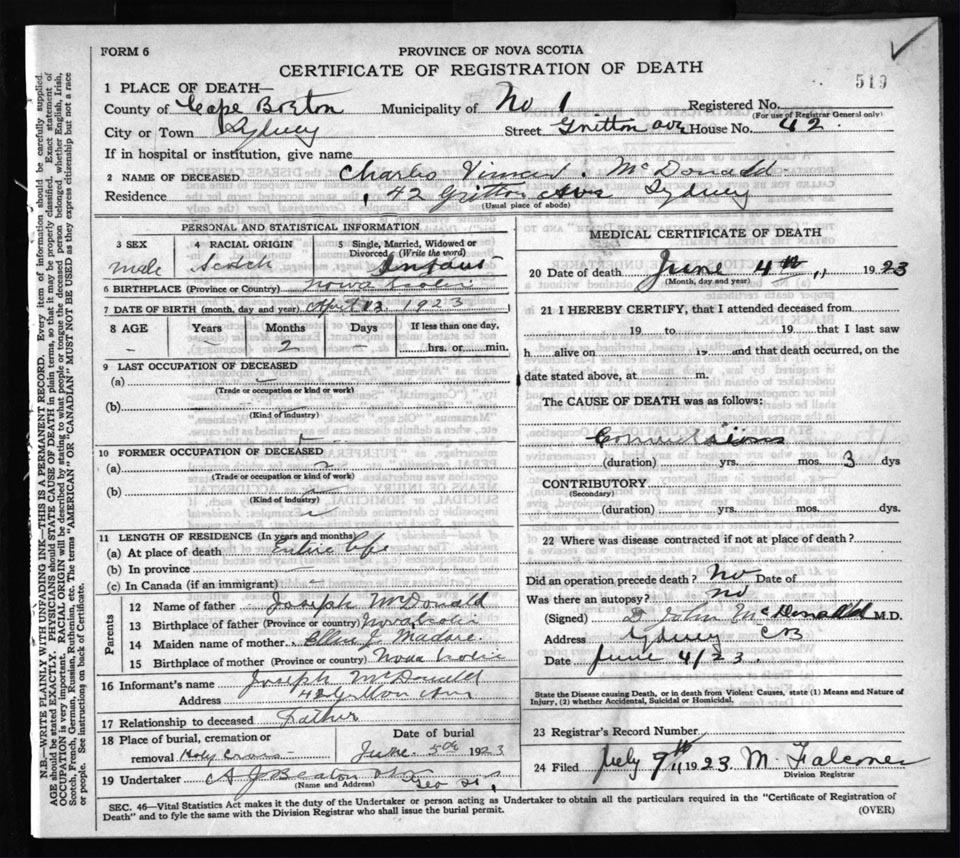 FORM 6
PROVINCE OF NOVA SCOTIA
CERTIFICATE OF REGISTRATION OF DEATH
519
1 PLACE OF DEATH—
County of Cape Breton Municipality of No 1 Registered No.
(For use of Registrar General only)
City or Town Sydney Street Ave House No. 42
If in hospital or institution, give name
2 NAME OF DECEASED Charles McDonald
Residence 42 Ave Sydney
(Usual place of abode)
PERSONAL AND STATISTICAL INFORMATION
3 SEX 4 RACIAL ORIGIN 5 Single, Married, Widowed or Divorced (Write the word)
male Scotch Infant
6 BIRTHPLACE (Province or Country) Nova Scotia
7 DATE OF BIRTH (month, day and year) April 1923
8 AGE Years Months Days If less than one day,
- - 2 - hrs. or min.
9 LAST OCCUPATION OF DECEASED
(a)
(Trade or occupation or kind or work)
(b)
(Kind of industry)
10 FORMER OCCUPATION OF DECEASED
(a)
(Trade or occupation or kind or work)
(b)
(Kind of industry)
11 LENGTH OF RESIDENCE (In years and months)
(a) At place of death Entire life
(b) In province
(c) In Canada (if an immigrant) -
Parents
12 Name of father Joseph McDonald
13 Birthplace of father (Province or country) Nova Scotia
14 Maiden name of mother Ellen J.
15 Birthplace of mother (Province or country) Nova Scotia
16 Informant's name Joseph McDonald
Address 42 Ave
17 Relationship to deceased Father
18 Place of burial, cremation or removal Holy Cross
Date of burial June 5th 1923
19 Undertaker A J Beaton
(Name and Address)
MEDICAL CERTIFICATE OF DEATH
20 Date of death June 4th 1923
(Month, day and year)
21 I HEREBY CERTIFY, that I attended deceased from
19 to 19 that I last saw
h alive on 19 and that death occurred, on the
date stated above, at m.
The CAUSE OF DEATH was as follows:
Convulsions
(duration) yrs. mos. 3 dys
CONTRIBUTORY
(Secondary)
(duration) yrs. mos. dys.
22 Where was disease contracted if not at place of death?
Did an operation precede death? No Date of
Was there an autopsy? No
(Signed) D John McDonald M.D.
Address Sydney CB
Date June 4/23.
State the Disease causing Death, or in death from Violent Causes, state (1) Means and Nature of
Injury, (2) whether Accidental, Suicidal or Homicidal.
23 Registrar's Record Number
24 Filed July 9th 1923 M.
Division Registrar
SEC. 46—Vital Statistics Act makes it the duty of the Undertaker or person acting as Undertaker to obtain all the particulars required in the "Certificate of Registration of
Death" and to fyle the same with the Division Registrar who shall issue the burial permit.
(OVER)
N.B.—WRITE PLAINLY WITH UNFADING INK—THIS IS A PERMANENT RECORD. Every item of information should be carefully supplied.
AGE should be stated EXACTLY. PHYSICIANS should STATE CAUSE OF DEATH in plain terms, so that it may be properly classified. Exact statement of
OCCUPATION is very important. RACIAL ORIGIN will be described by stating to what people or tongue the deceased person belonged whether English, Irish,
Scotch, French, German, Russian, Ruthenian, etc. The terms "AMERICAN" OR "CANADIAN" MUST NOT BE USED as they express citizenship but not a race
or people. See instructions on back of Certificate.